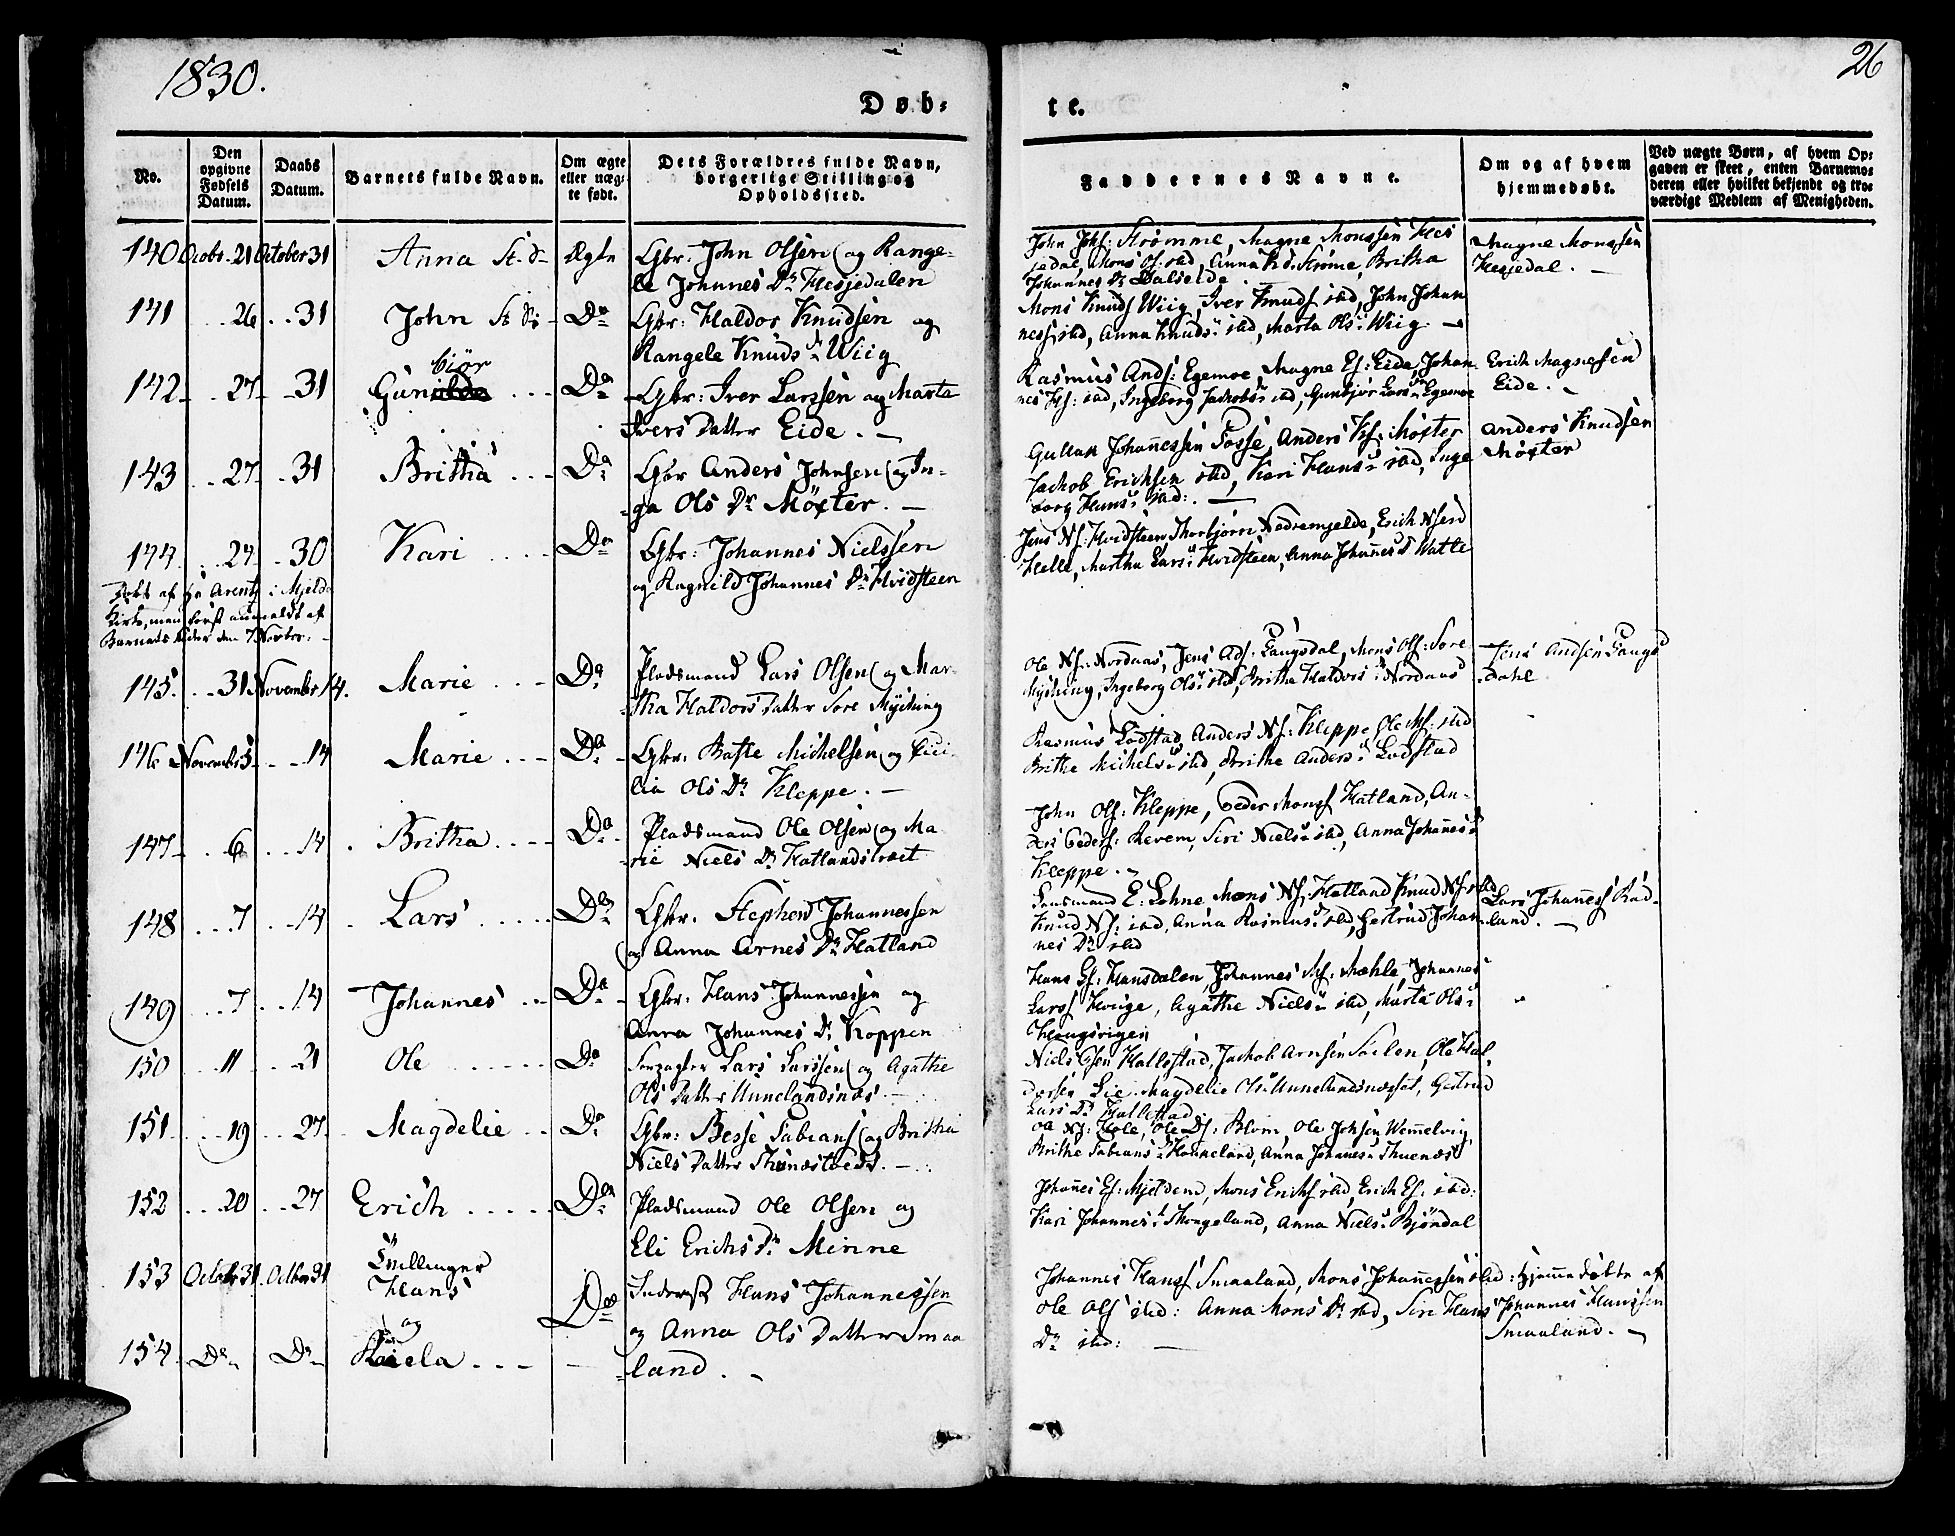 1830.
26
Døb-
te.
No.
Den opgivne Fødsels Datum.
Daabs Datum.
Barnets fulde Navn.
Om ægte eller uægte født.
Dets Forældres fulde Navn, borgerlige Stilling og Opholdssted.
Faddernes Navne.
Om og af hvem hjemmedøbt.
Ved uægte Børn, af hvem Opgaven er skeet, enten Barnemoderen eller hvilket bekjendt og troværdigt Medlem af Menigheden.
140 Octobr. 21 October 31 Anna Ægte Gbr: John Olsen og Range-
le Johannes Dr Hesjedalen
John Johs: Strømme, Magne Monssen Hes
jedal, Mons Strøme, Britha
Johannes Dr Dalseide
Magne Monssen
Hesjedal.
141 26 31 John Do Gbr: Haldor Knudsen og
Rangele Knuds Dr Wiig
Mons Knuds Wiig, Iver Knuds sted, John Johan
ness sted, Anna Knuds Dr sted, Marta Ols Dr Wiig
142 27 31 Gun biør Do Gbr: Iver Larssen og Marta
Ivers Datter Eide.
Rasmus Ands: Egemoe, Magne Es: Eide, Johan
nes sted, Ingeborg Jackobs Dr sted, Gunbjør Lars Dr Egemoe
Erich Magnesen
Eide.
143 27 31 Britha Do Gbr Anders Johnsen og In-
ga Ols Dr Møxter.
Gullak Johannessen Fosse, Anders Ks: Møxter
Jackob Erichsen sted, Kari Hans Dr sted, Inge
borg Hans Dr sted:
Anders Knudsen
Møxter
144 24 30 Kari Do Gbr: Johannes Nielssen
og Ragnild Johannes Dr Hvidsteen
Jens Ns: Hvidsteen Thorbjørn Nedremjelde, Erich
Helle, Martha Lars Dr Hvidsteen, Anna Johannes Dr Watle
Døbt af Hr Arentz i Mjelde
Kirke, men først anmeldt af
Barnets Fader den 7 Novbr:
145. 31 November 14. Marie Do Pladsmand Lars Olsen og Mar-
tha Haldors Datter Sore Myching
Ole Ns: Nordaas, Jens Ads: Langedal, Mons Ols: Sore
Myching, Ingeborg Ols Dr sted, Brithe Haldors Dr Nordaas
Jens Andsen Lange
dahl
146 November 5 14 Marie Do Gbr: Michelsen og Cici-
lia Ols Dr Kleppe.
Rasmus Lodstad, Anders Ns: Kleppe, Ole sted
Brithe Michels Dr sted, Brithe Anders Dr Lodstad
147 6 14 Britha Do Pladsmand Ole Olsen og Ma-
rie Niels Dr Hatlandstræet
John Ols: Kleppe, Peder Mons Hatland, An-
ders Peders: Revem, Siri Niels Dr sted, Anna Johannes Dr
Kleppe.
148 7 14 Lars Do Gbr. Stephen Johannessen
og Anna Arnes Dr Hatland
Lensmand E: Lohne Mons Ns: Hatland Knud Ns: sted
Knud Ns: sted, Anna Rasmus Dr sted, Gertrud Johan
nes Dr sted
Lars Johanness Rød-
land.
149 7 14 Johannes Do Gbr: Hans Johannessen og
Anna Johannes Dr Koppen
Hans Gs: Hansdalen, Johannes Ms: Mæhle, Johannes
Lars Hauge, Agathe Niels Dr sted, Marta Ols Dr
Haugsvigen
150 11 21 Ole Do Lars Larssen og Agathe
Ols Datter Unnelandsnæs.
Niels Hallestad, Jackob Arnsen Sørlen, Ole Hal-
dorsen Lie, Magdelie Ols Dr Unnelandsnæsset, Gertrud
Lars Dr Hallestad
151 19 27 Magdelie Do Gbr: Besse Fabians og Britha
Niels Datter
Ole Ns: Hole, Ole Ds: Blom, Ole Johsen Wemmelvig,
Brithe Fabians Dr Hauneland, Anna Johanes Dr Thuenæs
152 20 27 Erich Do Pladsmand Ole Olsen og
Eli Erichs Dr Minne
Johannes Es: Mjelden, Mons Erichs sted, Erich Es: sted:
Kari Johannes Dr Skougeland, Anna Niels Dr Bjöndal
153 October 31. October 31 Tvillinger
Hans
og
Do Hans Johannessen
og Anna Ols Datter Smaa
land.
Johannes Hans Smaaland, Mons Johannessen sted
Ole Ols sted: Anna Mons Dr sted, Siri Hans
Dr sted:
hjemmedøbte af
Johannes Hanssen
Smaaland.
154 Do Do